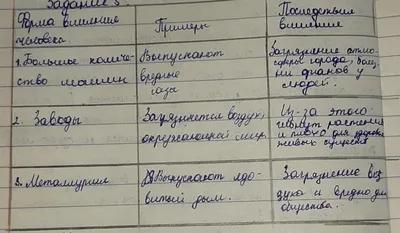 Задание 3.
Форма влияния
человека
Примеры
Последствия
влияния
1. Большое количе-
ство машин
Выпускают
вредные
газа
Загрязнение атмо-
сферы города, болез
ни у
людей.
2. Заводы
Загрязняется воздух,
окружающей мир.
Из-за этого
гибнут растения
и плохо для здоровья
живых существ
3. Металлургия
Выпускают ядо-
витый дым.
Загрязнение воз
духа и вредно для
общества.